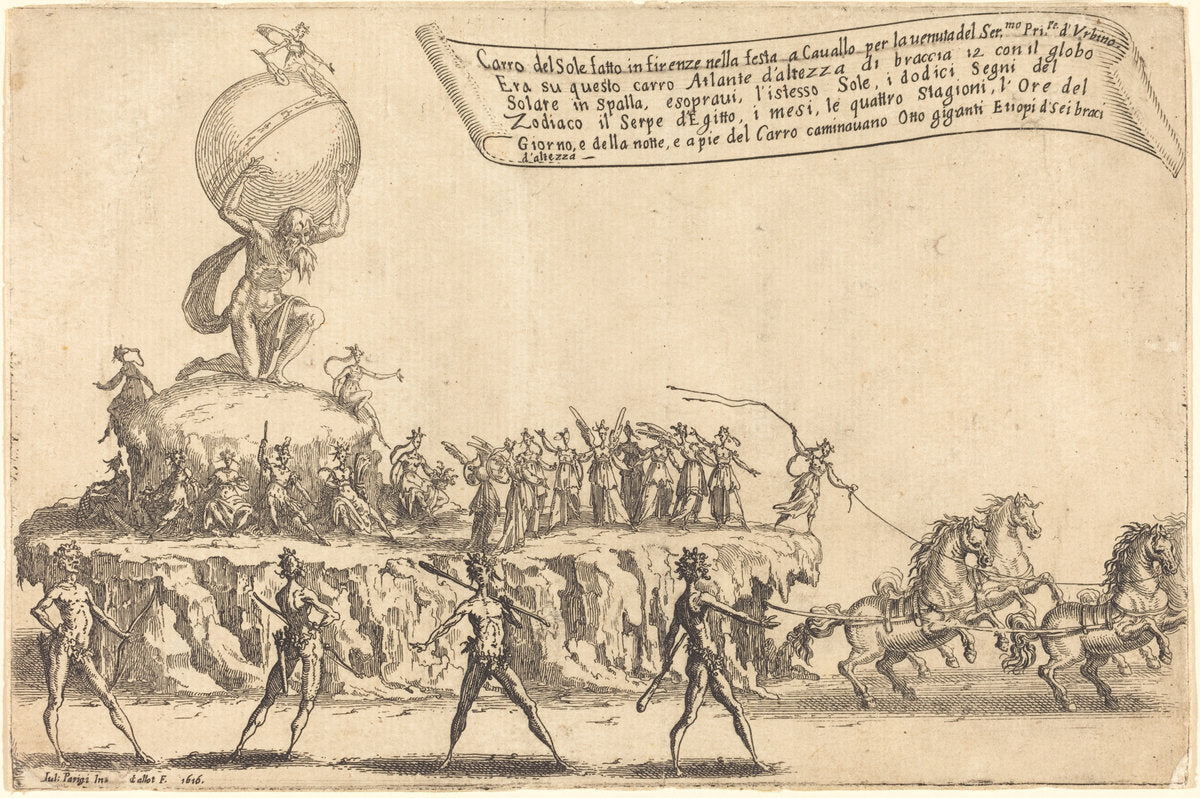 Carro del Sole fatto in firenze nella festa a Cauallo per la uenuta del Ser.mo Pri.pe d'Vrbino
Era su questo carro Atlante d'altezza di braccia 12 con il globo
Solare in Spalla, esopraui, l'istesso Sole, i dodici Segni del
Zodiaco il Serpe d'Egitto, i mesi, le quattro Stagioni, l'Ore del
Giorno, e della notte, e a pie del Carro caminauano Otto giganti Etiopi d'Sei braci
d'altezza —
Iul: Parigi In: Callot F. 1616.